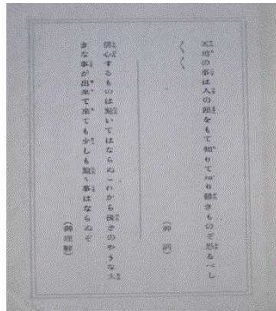 天地の事は人の眼をもて知りて知り得きものぞ恐るべし
〱〱
(神訓)
信心するものは驚いてはならぬこれから後どのやうな大
きな事が出来て来ても少しも驚く事はならぬぞ
(御理解)